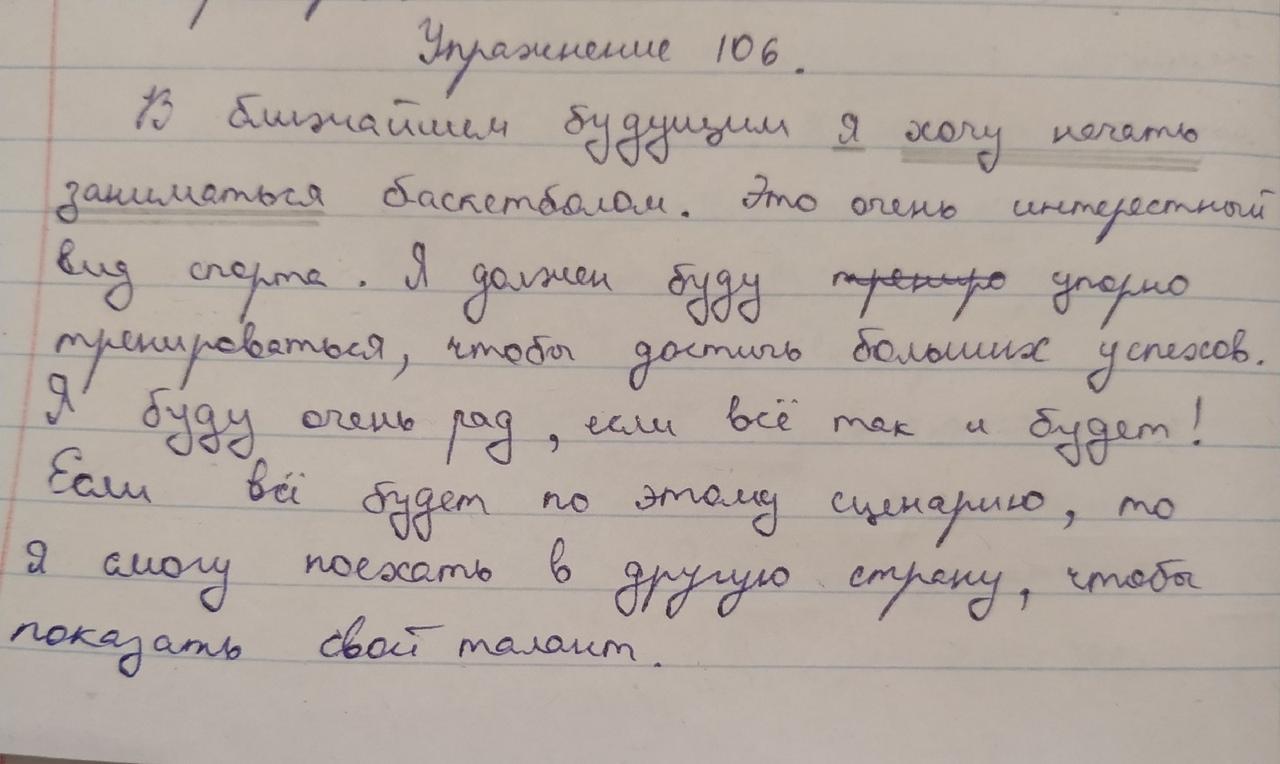 Упражнение 106.
В ближайшем будущим я хочу начать
заниматься баскетболом. Это очень интерестный
вид спорта. Я должен буду трениро упорно
тренироваться, чтобы достичь больших успехов.
Я буду очень рад, если всё так и будет!
Если всё будет по этому сценарию, то
я смогу поехать в другую страну, чтобы
показать свой талант.